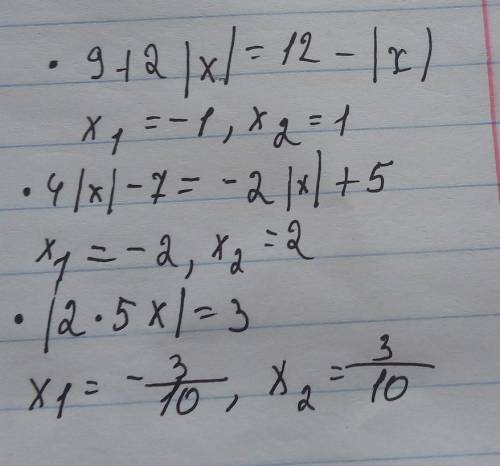 • 9+2|x|=12-|x|
x₁=-1, x₂=1
• 4|x|-7=-2|x|+5
x₁=-2, x₂=2
• |2·5x|=3
x₁=-3/10, x₂=3/10